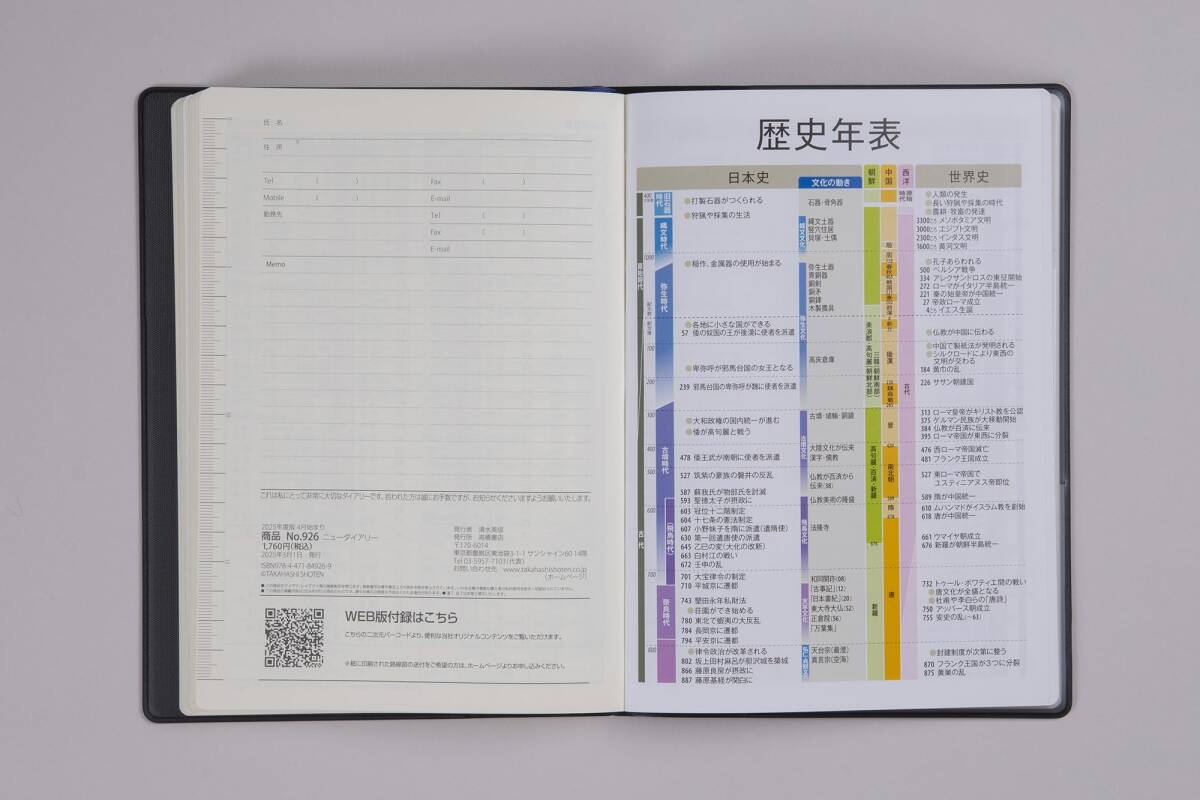 氏 名
住 所
Tel ( ) Fax ( )
Mobile ( ) E-mail
勤務先 Tel ( )
Fax ( )
E-mail
Memo
これは私にとって非常に大切なダイアリーです。拾われた方は誠にお手数ですが、お知らせくださいますようお願いいたします。
2025年度版 4月始まり
商品 No.926 ニューダイアリー
1,760円(税込)
2025年3月1日・発行
ISBN978-4-471-84926-9
©TAKAHASHI SHOTEN
発行者 清水美成
発行所 高橋書店
〒170-6014
東京都豊島区東池袋3-1-1 サンシャイン60 14階
Tel 03-5957-7103(代表)
お問い合わせ先 www.takahashishoten.co.jp
(ホームページ)
WEB版付録はこちら
こちらの二次元バーコードより、便利な当社オリジナルコンテンツをご覧いただけます。
※紙に印刷された路線図の送付をご希望の方は、ホームページよりお申し込みください。
歴史年表
日本史 文化の動き 朝鮮 中国 西洋 世界史
旧石器時代
縄文時代
弥生時代
古墳時代
(飛鳥時代)
奈良時代
古代
●打製石器がつくられる
●狩猟や採集の生活
●稲作、金属器の使用が始まる
●各地に小さな国ができる
57 倭の奴国の王が後漢に使者を派遣
●卑弥呼が邪馬台国の女王となる
239 邪馬台国の卑弥呼が魏に使者を派遣
●大和政権の国内統一が進む
●倭が高句麗と戦う
478 倭王武が南朝に使者を派遣
527 筑紫の豪族の磐井の反乱
587 蘇我氏が物部氏を討滅
593 聖徳太子が摂政に
603 冠位十二階制定
604 十七条の憲法制定
607 小野妹子を隋に派遣(遣隋使)
630 第一回遣唐使の派遣
645 乙巳の変(大化の改新)
663 白村江の戦い
672 壬申の乱
701 大宝律令の制定
710 平城京に遷都
743 墾田永年私財法
●荘園ができ始める
780 東北で蝦夷の大反乱
784 長岡京に遷都
794 平安京に遷都
●律令政治が改革される
802 坂上田村麻呂が胆沢城を築城
866 藤原良房が摂政に
887 藤原基経が関白に
縄文文化
弥生文化
古墳文化
飛鳥文化
天平文化
弘仁・貞観文化
石器・骨角器
縄文土器
竪穴住居
貝塚・土偶
弥生土器
青銅器
銅剣
銅矛
銅鐸
木製農具
高床倉庫
古墳・埴輪・銅鏡
大陸文化が伝来
漢字・儒教
仏教が百済から
伝来(38)
仏教美術の隆盛
法隆寺
和同開珎(08)
「古事記」(12)
「日本書紀」(20)
東大寺大仏(52)
正倉院(56)
「万葉集」
天台宗(最澄)
真言宗(空海)
楽浪郡・高句麗(朝鮮北部)
三韓(朝鮮南部)
高句麗・百済・新羅
676
新羅
殷
周
春秋
戦国
秦
前漢
新
後漢
晋
南北朝
隋
618
唐
古代
●人類の発生
●長い狩猟や採集の時代
●農耕・牧畜の発達
3300ごろ メソポタミア文明
3000ごろ エジプト文明
2300ごろ インダス文明
1600ごろ 黄河文明
●孔子あらわれる
500 ペルシア戦争
334 アレクサンドロスの東征開始
272 ローマがイタリア半島統一
221 秦の始皇帝が中国統一
27 帝政ローマ成立
4ごろ イエス生誕
●仏教が中国に伝わる
●中国で製紙法が発明される
●シルクロードにより東西の
文明が交わる
184 黄巾の乱
226 ササン朝建国
313 ローマ皇帝がキリスト教を公認
375 ゲルマン民族が大移動開始
384 仏教が百済に伝来
395 ローマ帝国が東西に分裂
476 西ローマ帝国滅亡
481 フランク王国成立
527 東ローマ帝国で
ユスティニアヌス帝即位
589 隋が中国統一
610 ムハンマドがイスラム教を創始
618 唐が中国統一
661 ウマイヤ朝成立
676 新羅が朝鮮半島統一
732 トゥール・ポワティエ間の戦い
●唐文化が全盛となる
●杜甫や李白らの「唐詩」
750 アッバース朝成立
755 安史の乱(~63)
●封建制度が次第に整う
870 フランク王国が3つに分裂
875 黄巣の乱